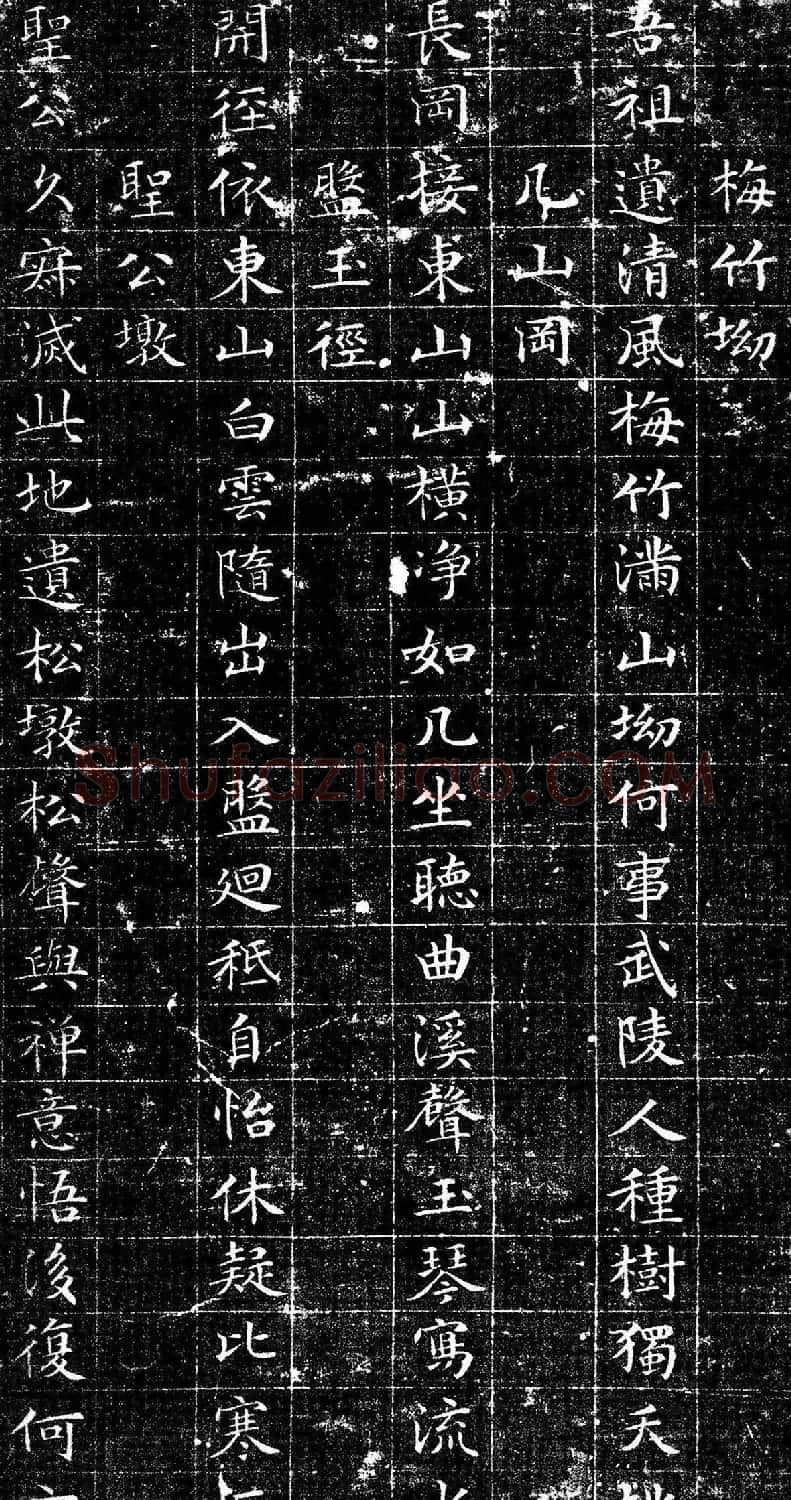 梅竹坳
吾祖遺清風梅竹滿山坳何事武陵人種樹獨夭
几山岡
長岡接東山山橫净如几坐聽曲溪聲玉琴寫流
盤玉徑
開徑依東山白雲隨出入盤迴秖自怡休疑比寒
聖公墩
聖公久寂滅此地遺松墩松聲與禅意悟後復何
Shufaziliao.COM